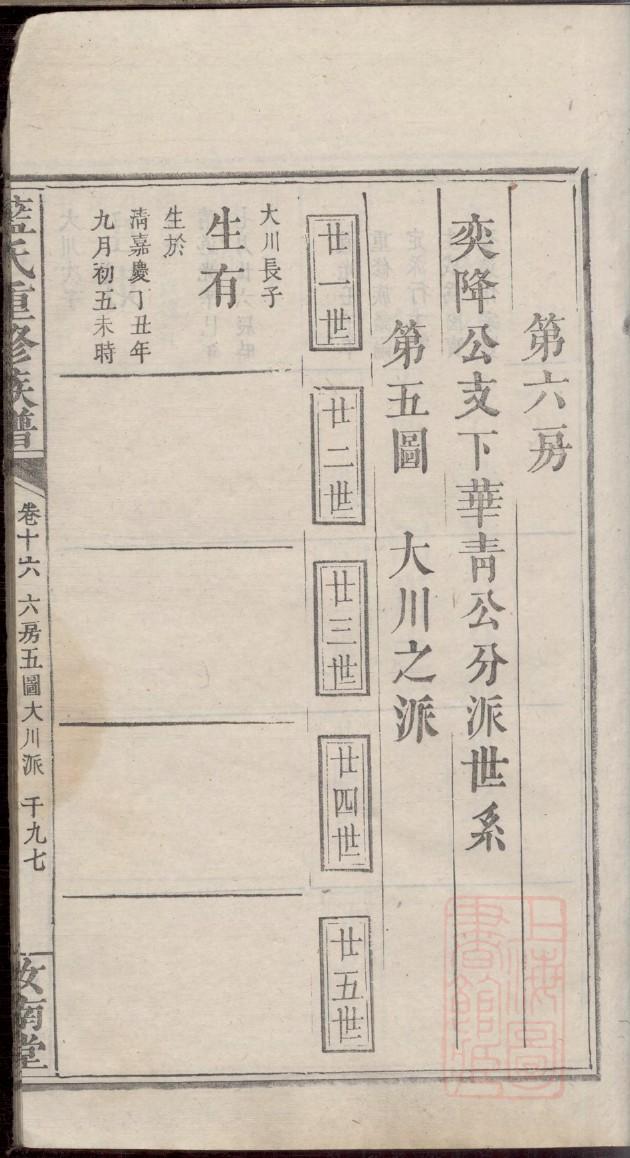 第六房
奕降公支下華青公分派世系
第五圖 大川之派
廿一世
廿二世
廿三世
廿四世
廿五世
大川長子
生有
生於
清嘉慶丁丑年
九月初五未時
藍氏重修族譜
卷十六 六房五圖大川派 千九七
汝南堂
上海圖書館藏